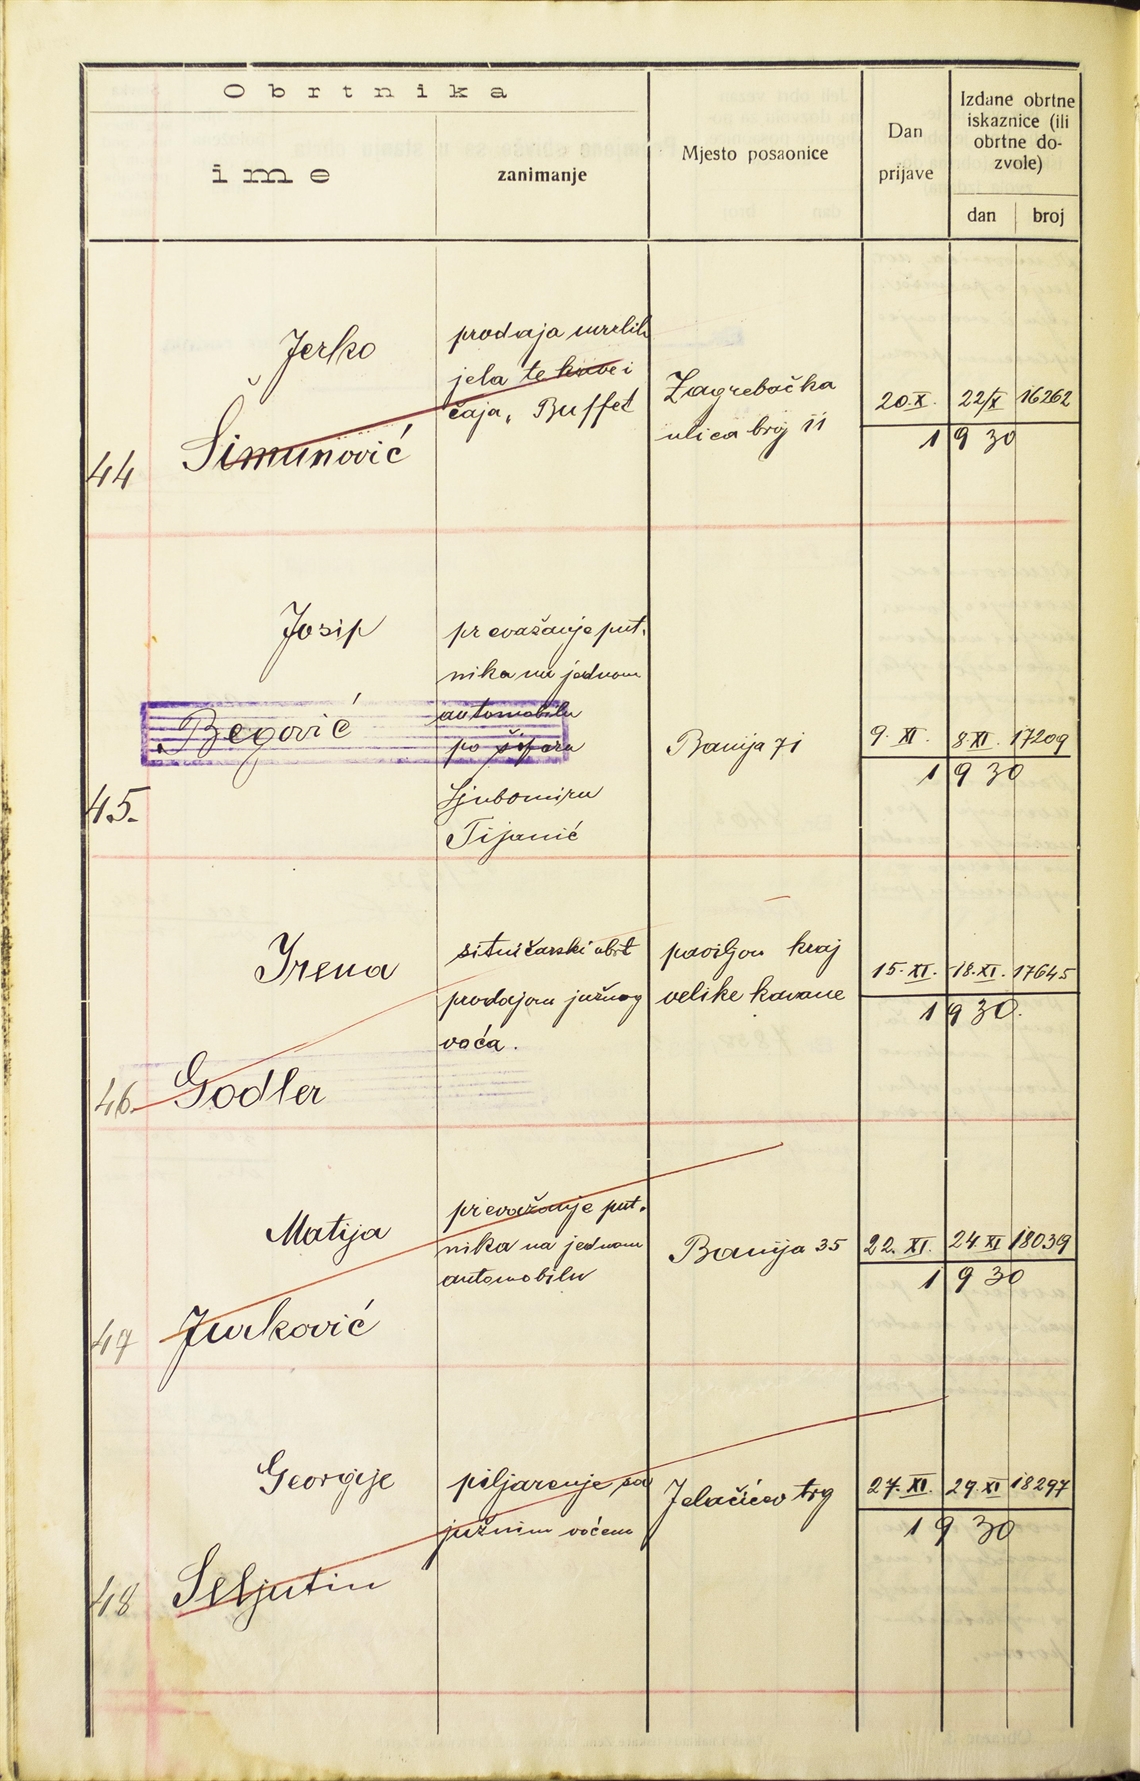 Obrtnika
ime
zanimanje
Mjesto posaonice
Dan
prijave
Izdane obrtne
iskaznice (ili
obrtne do-
zvole)
dan
broj
44
Jerko
Šimunović
prodaja mrzlih
jela te kave i
čaja, Buffet
Zagrebačka
ulica broj 11
20.X.
22/X
16262
1930
45.
Josip
Begović
prevažanje put.
nika na jednom
automobilu
po šoferu
Ljubomiru
Tijanić
Banija 71
9. XI.
8 XI.
17209
1930
46.
Irena
Godler
sitničarski obrt
prodajom južnog
voća.
paviljon kraj
velike kavane
15. XI.
18. XI.
17645
1930.
47
Matija
Jurković
prevažanje put.
nika na jednom
automobilu
Banija 35
22. XI.
24 XI
18039
1930
48
Georgije
Seljutin
piljarenje sa
južnim voćem
Jelačićev trg
27. XI.
29. XI
18297
1930